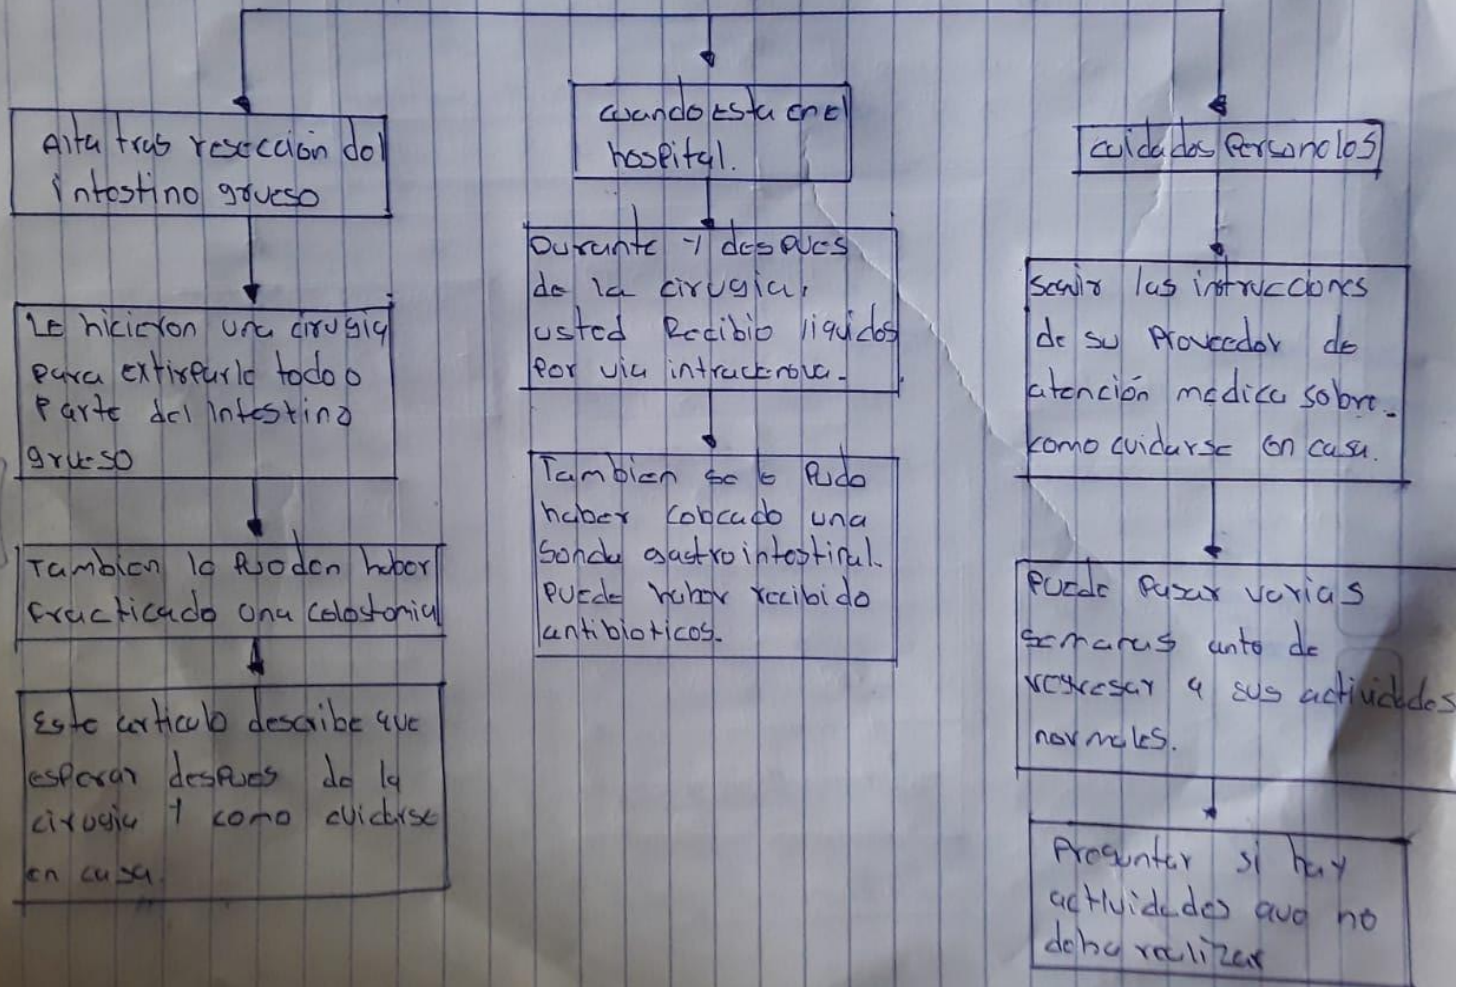 Alta tras resección del
intestino grueso
Le hicieron una cirugia
para extirparle todo o
parte del intestino
grueso
Tambien le pueden haber
practicado una colostomia
Este articulo describe que
esperar despues de la
cirugia y como cuidarse
en casa.
cuando esta en el
hospital.
Durante y despues
de la cirugia,
usted Recibio liquidos
por via intravenova.
Tambien se le pudo
haber colocado una
sonda gastrointestinal.
puede haber recibido
antibioticos.
cuidados personales
Seguir las instrucciones
de su proveedor de
atención medica sobre.
como cuidarse en casa.
puede pasar varias
semanas ante de
regresar a sus actividades
normales.
Preguntar si hay
actividades que no
deba realizar